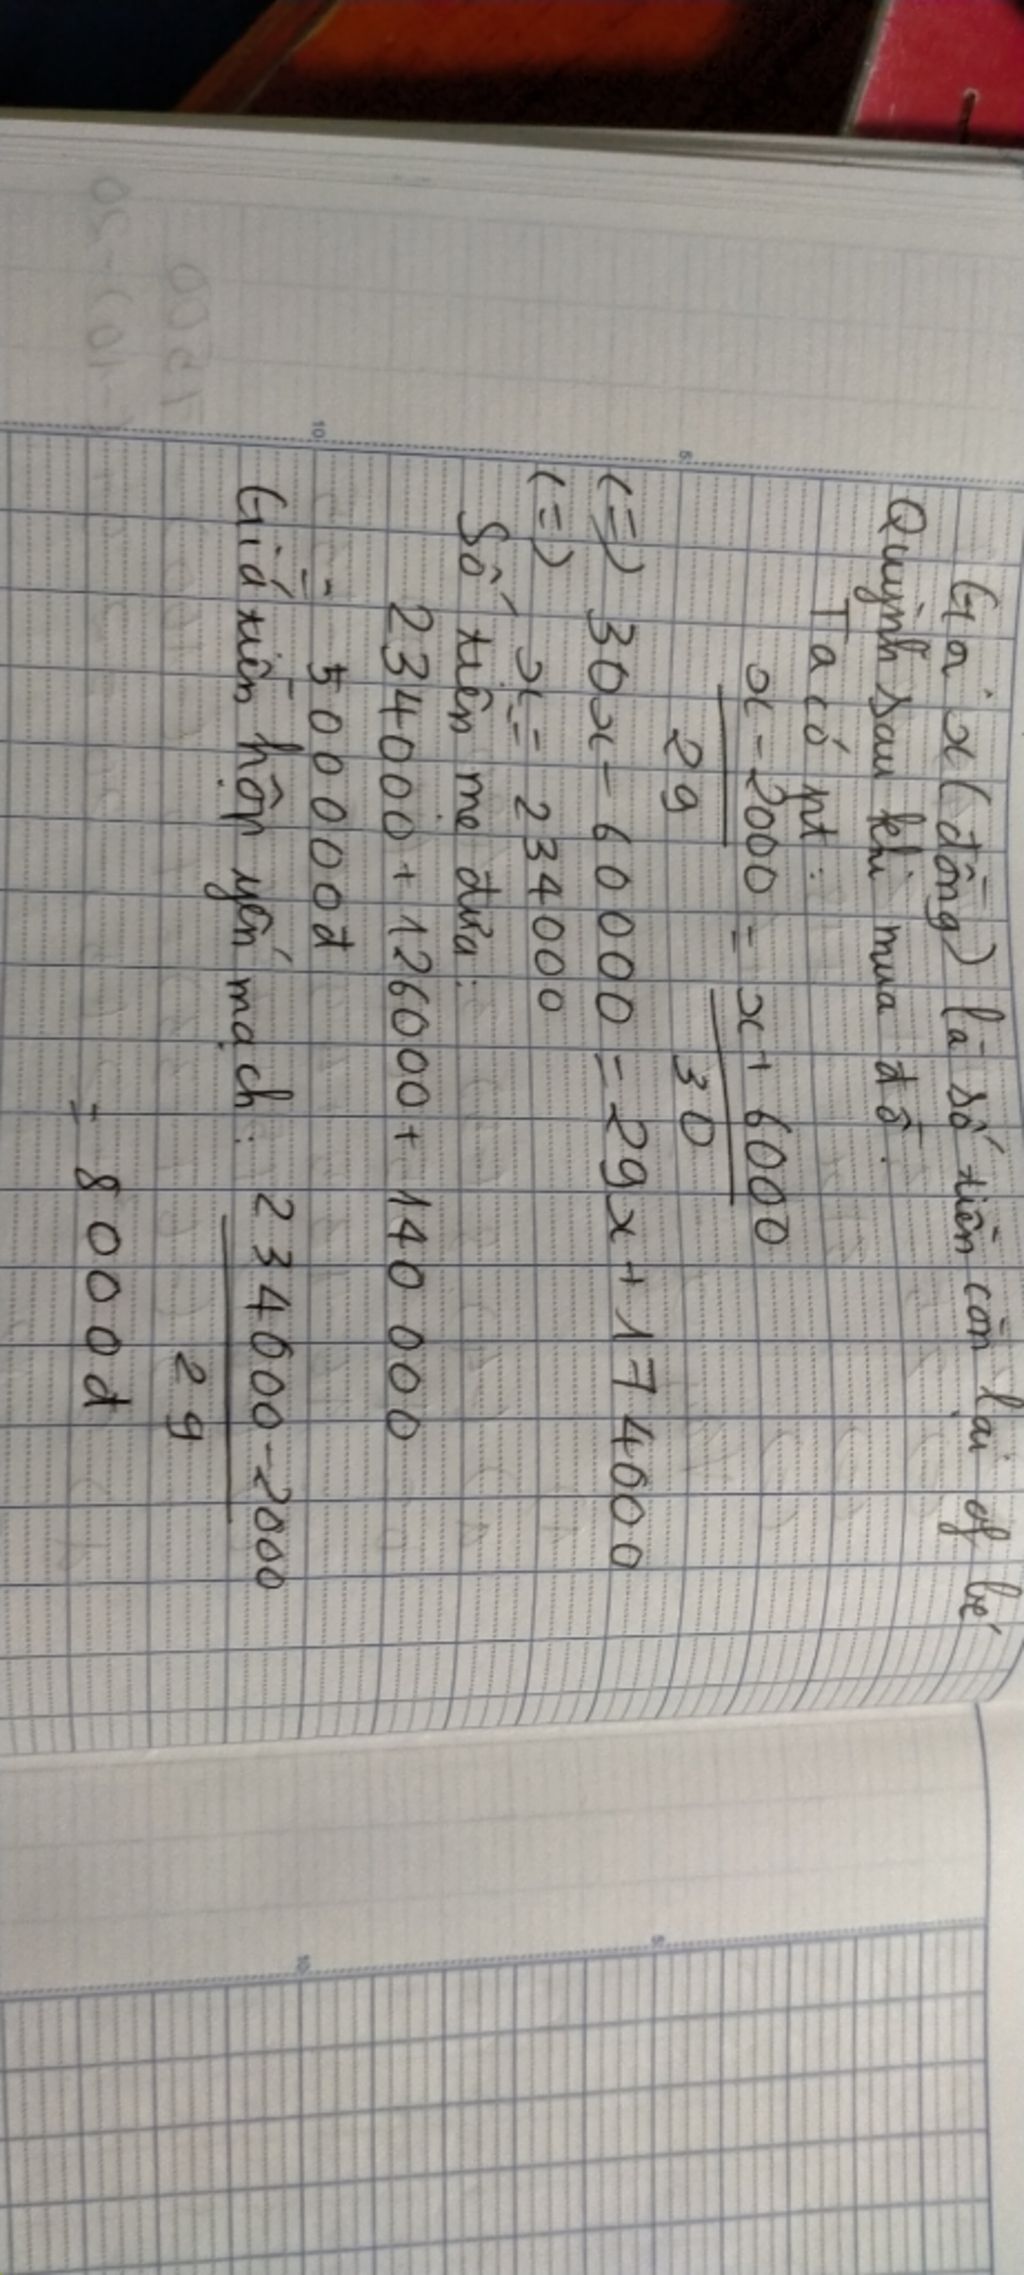 Gọi x (đồng) là số tiền còn lại of bé
Quỳnh sau khi mua đồ.
Ta có pt:
x - 2000 = x + 6000
29 30
(=) 30x - 60000 = 29x + 174000
(=) x = 234000
Số tiền mẹ đưa:
234000 + 126000 + 140 000
= 500000đ
Giá tiền hộp yến mạch: 234000 - 2000
29
= 8000đ
5
10
5
10